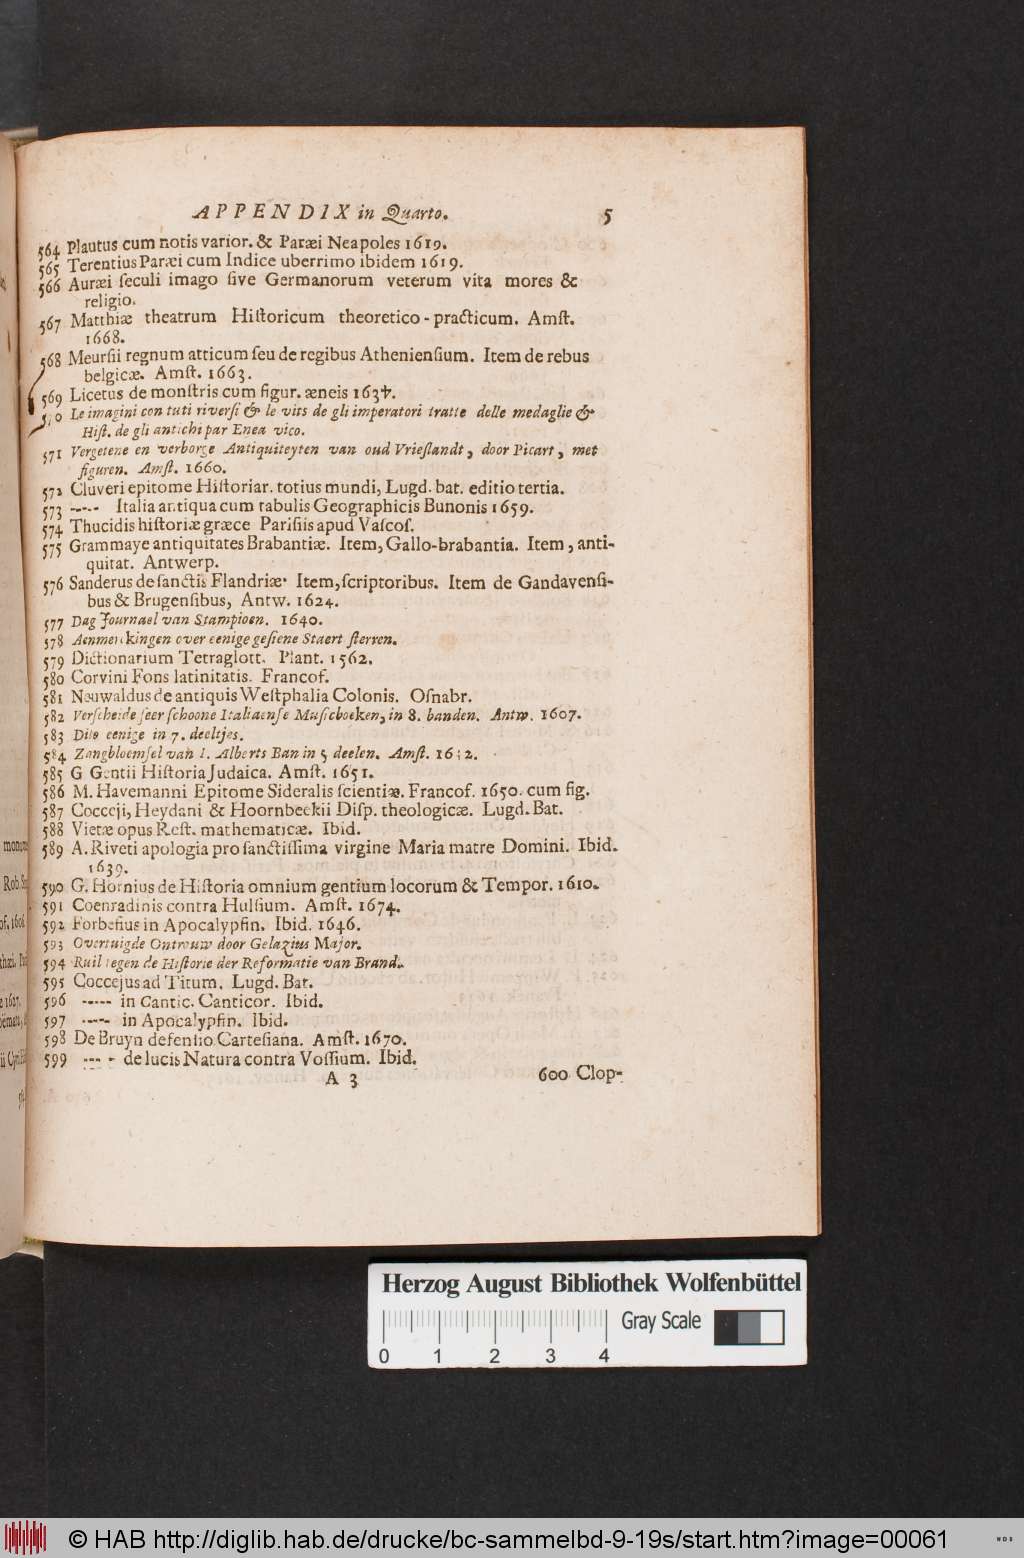 APPENDIX in Quarto. 5
564 Plautus cum notis varior. & Paræi Neapoles 1619.
565 Terentius Paræi cum Indice uberrimo ibidem 1619.
566 Auræi ſeculi imago ſive Germanorum veterum vita mores &
religio.
567 Matthiæ theatrum Hiſtoricum theoretico-practicum. Amſt.
1668.
568 Meurſii regnum atticum ſeu de regibus Athenienſium. Item de rebus
belgicæ. Amſt. 1663.
569 Licetus de monſtris cum figur. æneis 1634.
570 Le imagini con tuti riverſi & le vits de gli imperatori tratte delle medaglie &
Hiſt. de gli antichi par Enea vico.
571 Vergetene en verborge Antiquiteyten van oud Vrieſlandt, door Picart, met
figuren. Amſt. 1660.
572 Cluveri epitome Hiſtoriar. totius mundi, Lugd. bat. editio tertia.
573 ----- Italia antiqua cum tabulis Geographicis Bunonis 1659.
574 Thucidis hiſtoriæ græce Pariſiis apud Vaſcoſ.
575 Grammaye antiquitates Brabantiæ. Item, Gallo-brabantia. Item, anti-
quitat. Antwerp.
576 Sanderus de ſanctis Flandriæ. Item, ſcriptoribus. Item de Gandavenſi-
bus & Brugenſibus, Antw. 1624.
577 Dag Journael van Stampioen. 1640.
578 Aenmerkingen over eenige geſiene Staert ſterren.
579 Dictionarium Tetraglott. Plant. 1562.
580 Corvini Fons latinitatis. Francof.
581 Neuwaldus de antiquis Weſtphalia Colonis. Oſnabr.
582 Verſcheide ſeer ſchoone Italiaenſe Muſicboeken, in 8. banden. Antw. 1607.
583 Dito eenige in 7. deeltjes.
584 Zangbloemſel van I. Alberts Ban in 5 deelen. Amſt.
585 G Gentii Hiſtoria Judaica. Amſt. 1651.
586 M. Havemanni Epitome Sideralis ſcientiæ. Francof. 1650. cum fig.
587 Cocceji, Heydani & Hoornbeekii Diſp. theologicæ. Lugd. Bat.
588 Vietæ opus Reſt. mathematicæ. Ibid.
589 A. Riveti apologia pro ſanctiſſima virgine Maria matre Domini. Ibid.
1639.
590 G. Hornius de Hiſtoria omnium gentium locorum & Tempor. 1610.
591 Coenradinis contra Hulſium. Amſt. 1674.
592 Forbeſius in Apocalypſin. Ibid. 1646.
593 Overtuigde Ontrouw door Gelazius Major.
594 Ruil tegen de Hiſtorie der Reformatie van Brand.
595 Coccejus ad Titum. Lugd. Bat.
596 ----- in Cantic. Canticor. Ibid.
597 ----- in Apocalypſin. Ibid.
598 De Bruyn defenſio Carteſiana. Amſt. 1670.
599 ----- de lucis Natura contra Voſſium. Ibid.
A 3 600 Clop-
Herzog August Bibliothek Wolfenbüttel
Gray Scale
0 1 2 3 4
© HAB http://diglib.hab.de/drucke/bc-sammelbd-9-19s/start.htm?image=00061